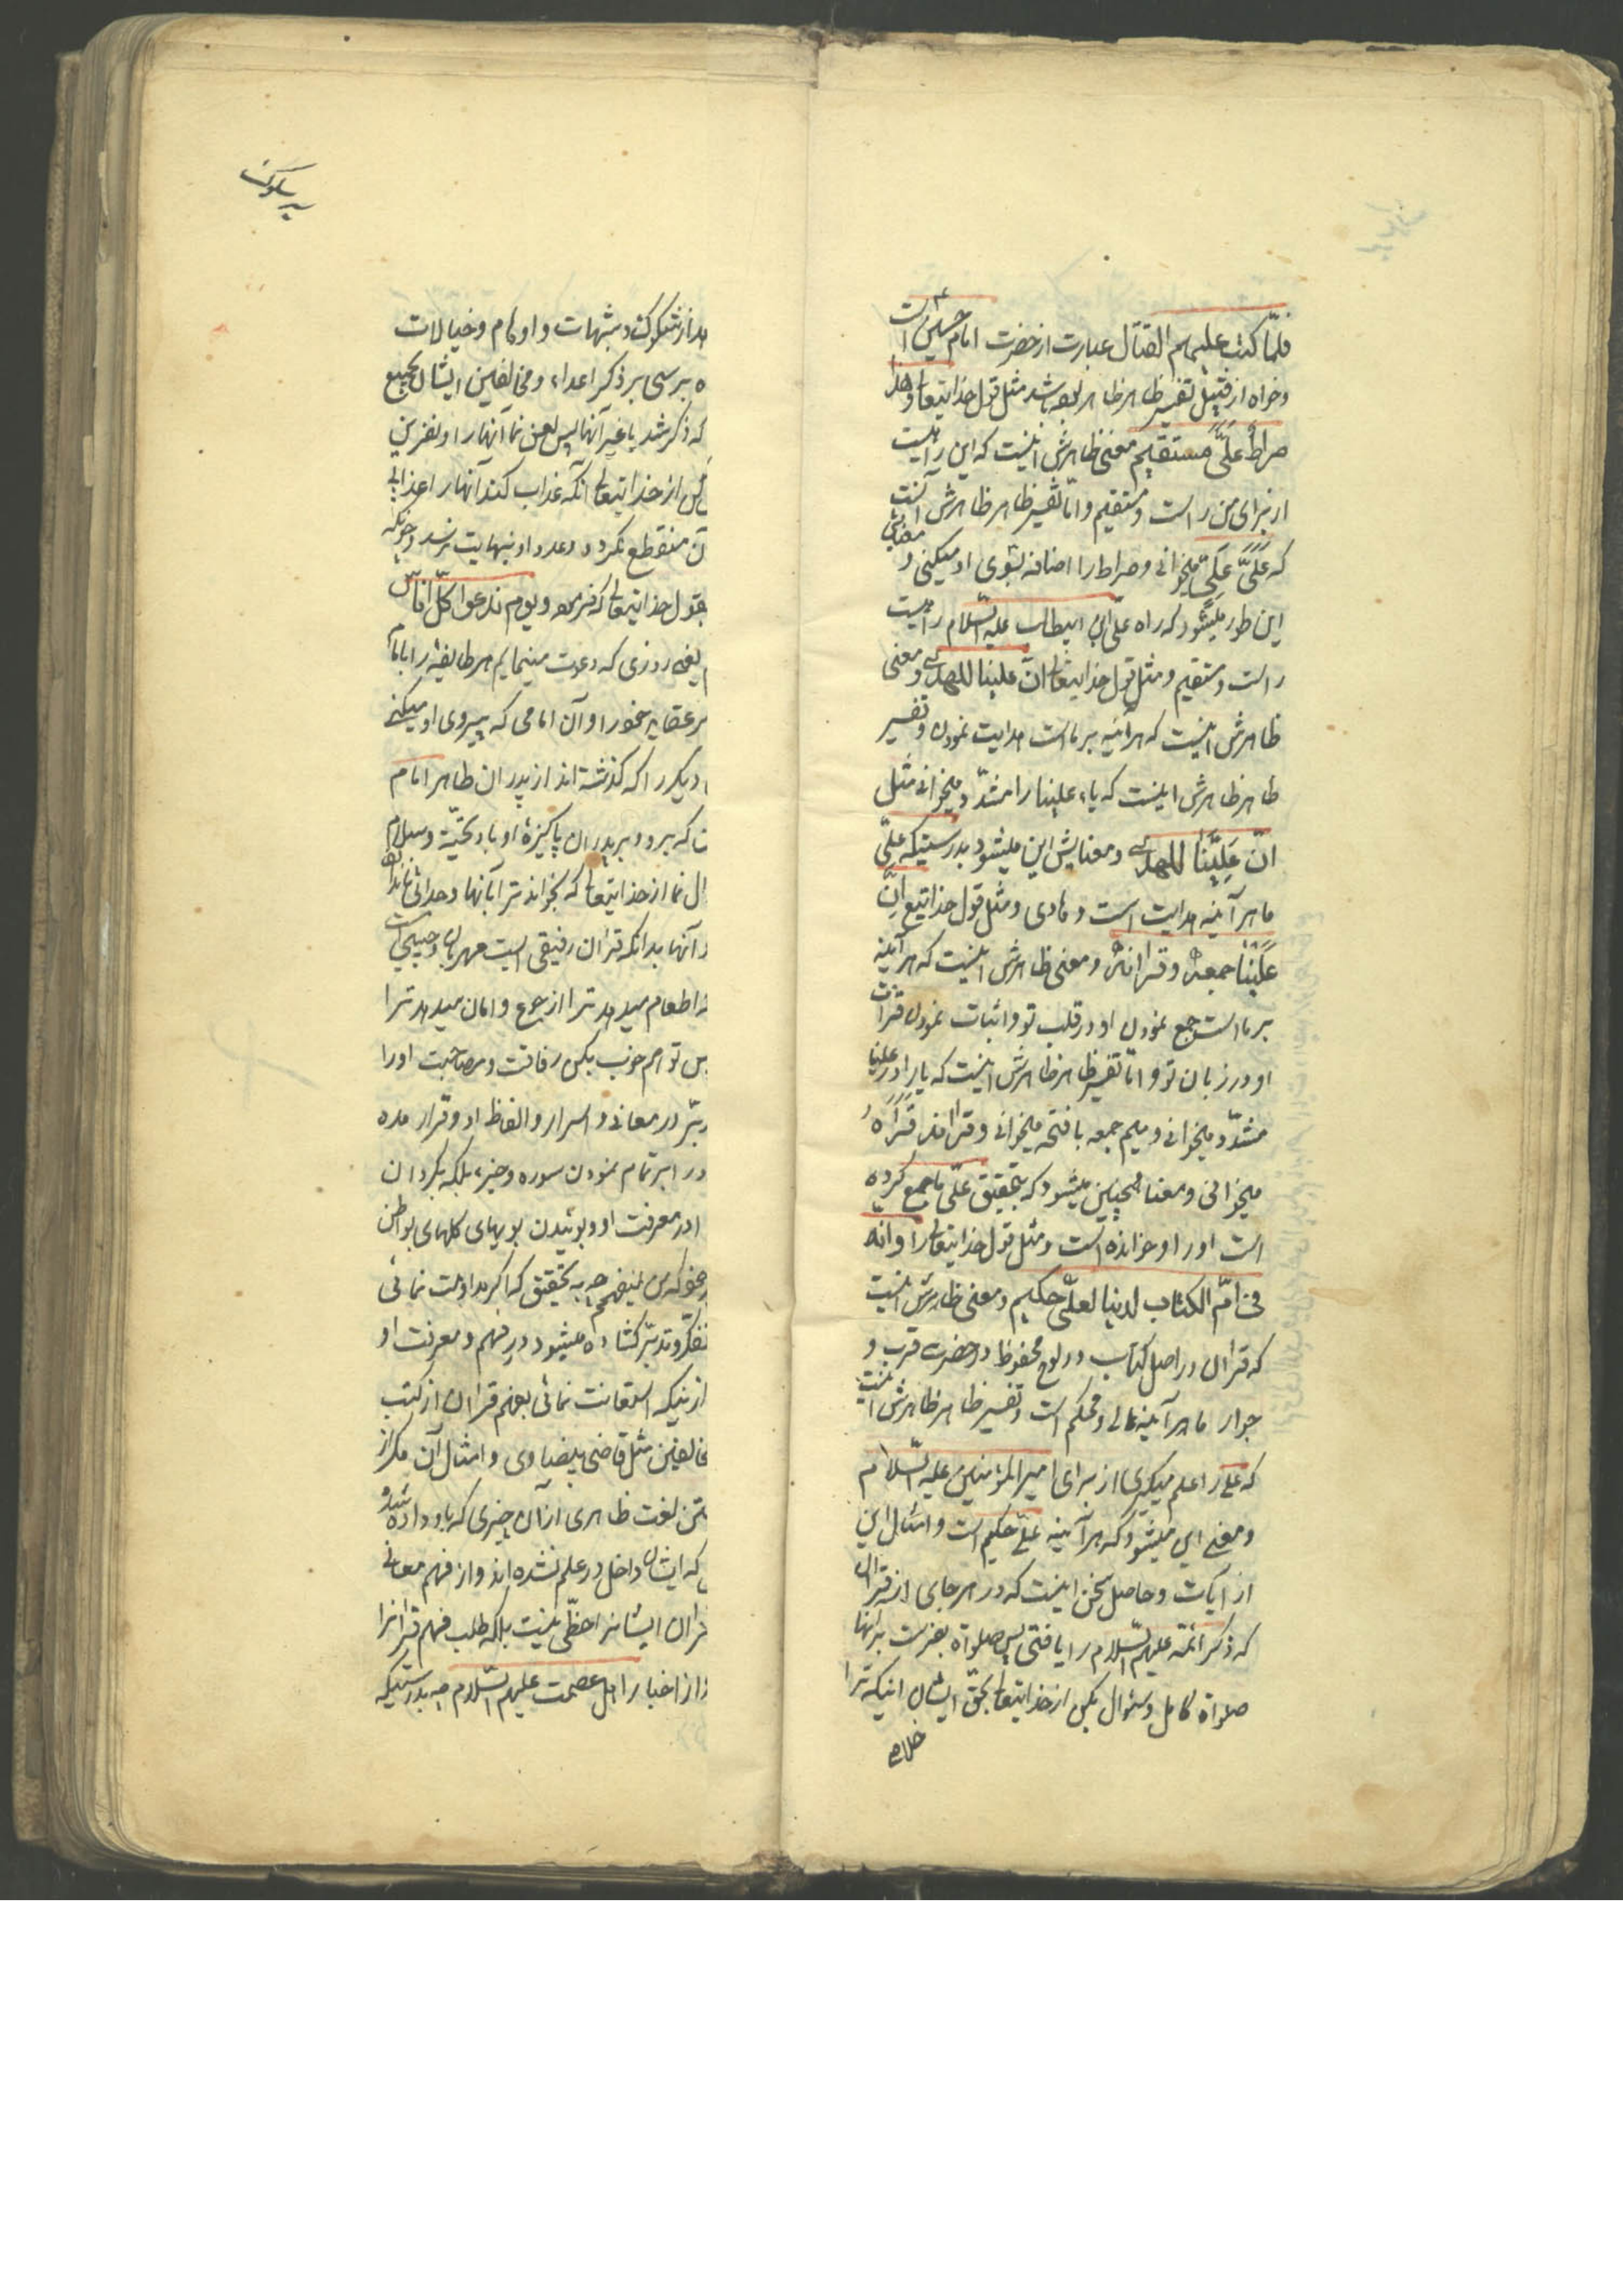 فلمّا کتب علیهم القتال عبارت از حضرت امام حسین ع است
و خواه از قبیل تفسیر ظاهر ظاهر بوده باشد مثل قول خدایتعالی و هذا
صراطٌ علیَّ مستقیم معنی ظاهرش اینست که این راهیست
از برای من راست و مستقیم و امّا تفسیر ظاهر ظاهرش آنست
که علیَّ علیٍّ میخوانی و صراط را اضافه بسوی او میکنی و معنایش
این طور میشود که راه علی ابن ابیطالب علیه السّلام راهیست
راست و مستقیم و مثل قول خدایتعالی انّ علینا للهدی و معنی
ظاهرش اینست که هرآینه بر ماست هدایت نمودن و تفسیر
ظاهر ظاهرش اینست که یاء علینا را مشدّد میخوانی مثل
انّ عَلِیَّنا للهدی و معنایش این میشود بدرستیکه علیّ
ما هرآینه هدایت است و هادی و مثل قول خدایتع انّ
علینا جمعه و قرآنه و معنی ظاهرش اینست که هرآینه
بر ماست جمع نمودن او در قلب تو و اثبات نمودن قرائت
او در زبان تو و امّا تفسیر ظاهر ظاهرش اینست که یا را در علینا
مشدّد میخوانی و میم جمعه با فتحه میخوانی و قرآنه قَرَأَهُ
میخوانی و معنا همچنین میشود که بتحقیق علیّ ما جمع کرده
است او را و خوانده است و مثل قول خدایتعالی و انّه
فی امّ الکتاب لدینا لعلیّ حکیم و معنی ظاهرش اینست
که قرآن در اصل کتاب در لوح محفوظ در حضرت قرب و
جوار ما هرآینه عالی و محکم است و تفسیر ظاهر ظاهرش اینست
که علی را علم میگیری از برای امیرالمؤمنین علیه السّلام
و معنی این میشود که هرآینه علی حکیم است و امثال این
از آیات و حاصل سخن اینست که در هر جای از قرآن
که ذکر ائمّه علیهم السّلام را یافتی پس صلواة بفرست بر آنها
صلواة کامل و سئوال بکن از خدایتعالی بحقّ ایشان اینکه ترا
خلاصی
هد از شکوک و شبهات و اوهام و خیالات
ه برسی بر ذکر اعداء و مخالفین ایشان بجمیع
که ذکر شد یا غیر آنها پس لعن نما آنها را و نفرین
کن از خدایتعالی آنکه عذاب کند آنها را عذابی
آن منقطع نگردد و عدد او نهایت نرسد و چونکه
بقول خدایتعالی که فرموده و یوم ندعوا کلّ اناس
یعنی روزی که دعوت مینمایم هر طایفه را بامام
بر عقاید خود را و آن امامی که پیروی او میکنی
دیگر را که گذشته اند از پدران طاهر امام
ت که برود بر پدران پاکیزهٔ او باد تحیّت و سلام
ال نما از خدایتعالی که بخواند ترا بآنها و جدائی
آنها بدانکه قرآن رفیقی است مهربان و حبیبی است
ه اطعام میدهد ترا از جوع و امان میدهد ترا
پس تو هم خوب بکن رفاقت و مصاحبت او را
دبّر در معانی و اسرار و الفاظ او و قرار مده
در ابر تمام نمودن سوره و جزء بلکه بگردان
اد معرفت او و بوئیدن بویهای گلهای بواطن
و مگو که من نمیفهمم چه به تحقیق که اگر مداومت نمائی
تفکّر و تدبّر گشاده میشود در فهم و معرفت او
از اینکه استعانت نمائی بفهم قرآن از کتب
مخالفین مثل قاضی بیضاوی و امثال آن مگر از
تن لغت ظاهری از آن چیزی که باو داده شده
که ایشان داخل در علم نشده اند و از فهم معانی
قرآن ایشانرا حظّی نیست بلکه طلب فهم قرآنرا
از اخبار اهل عصمت علیهم السّلام چه بدرستیکه